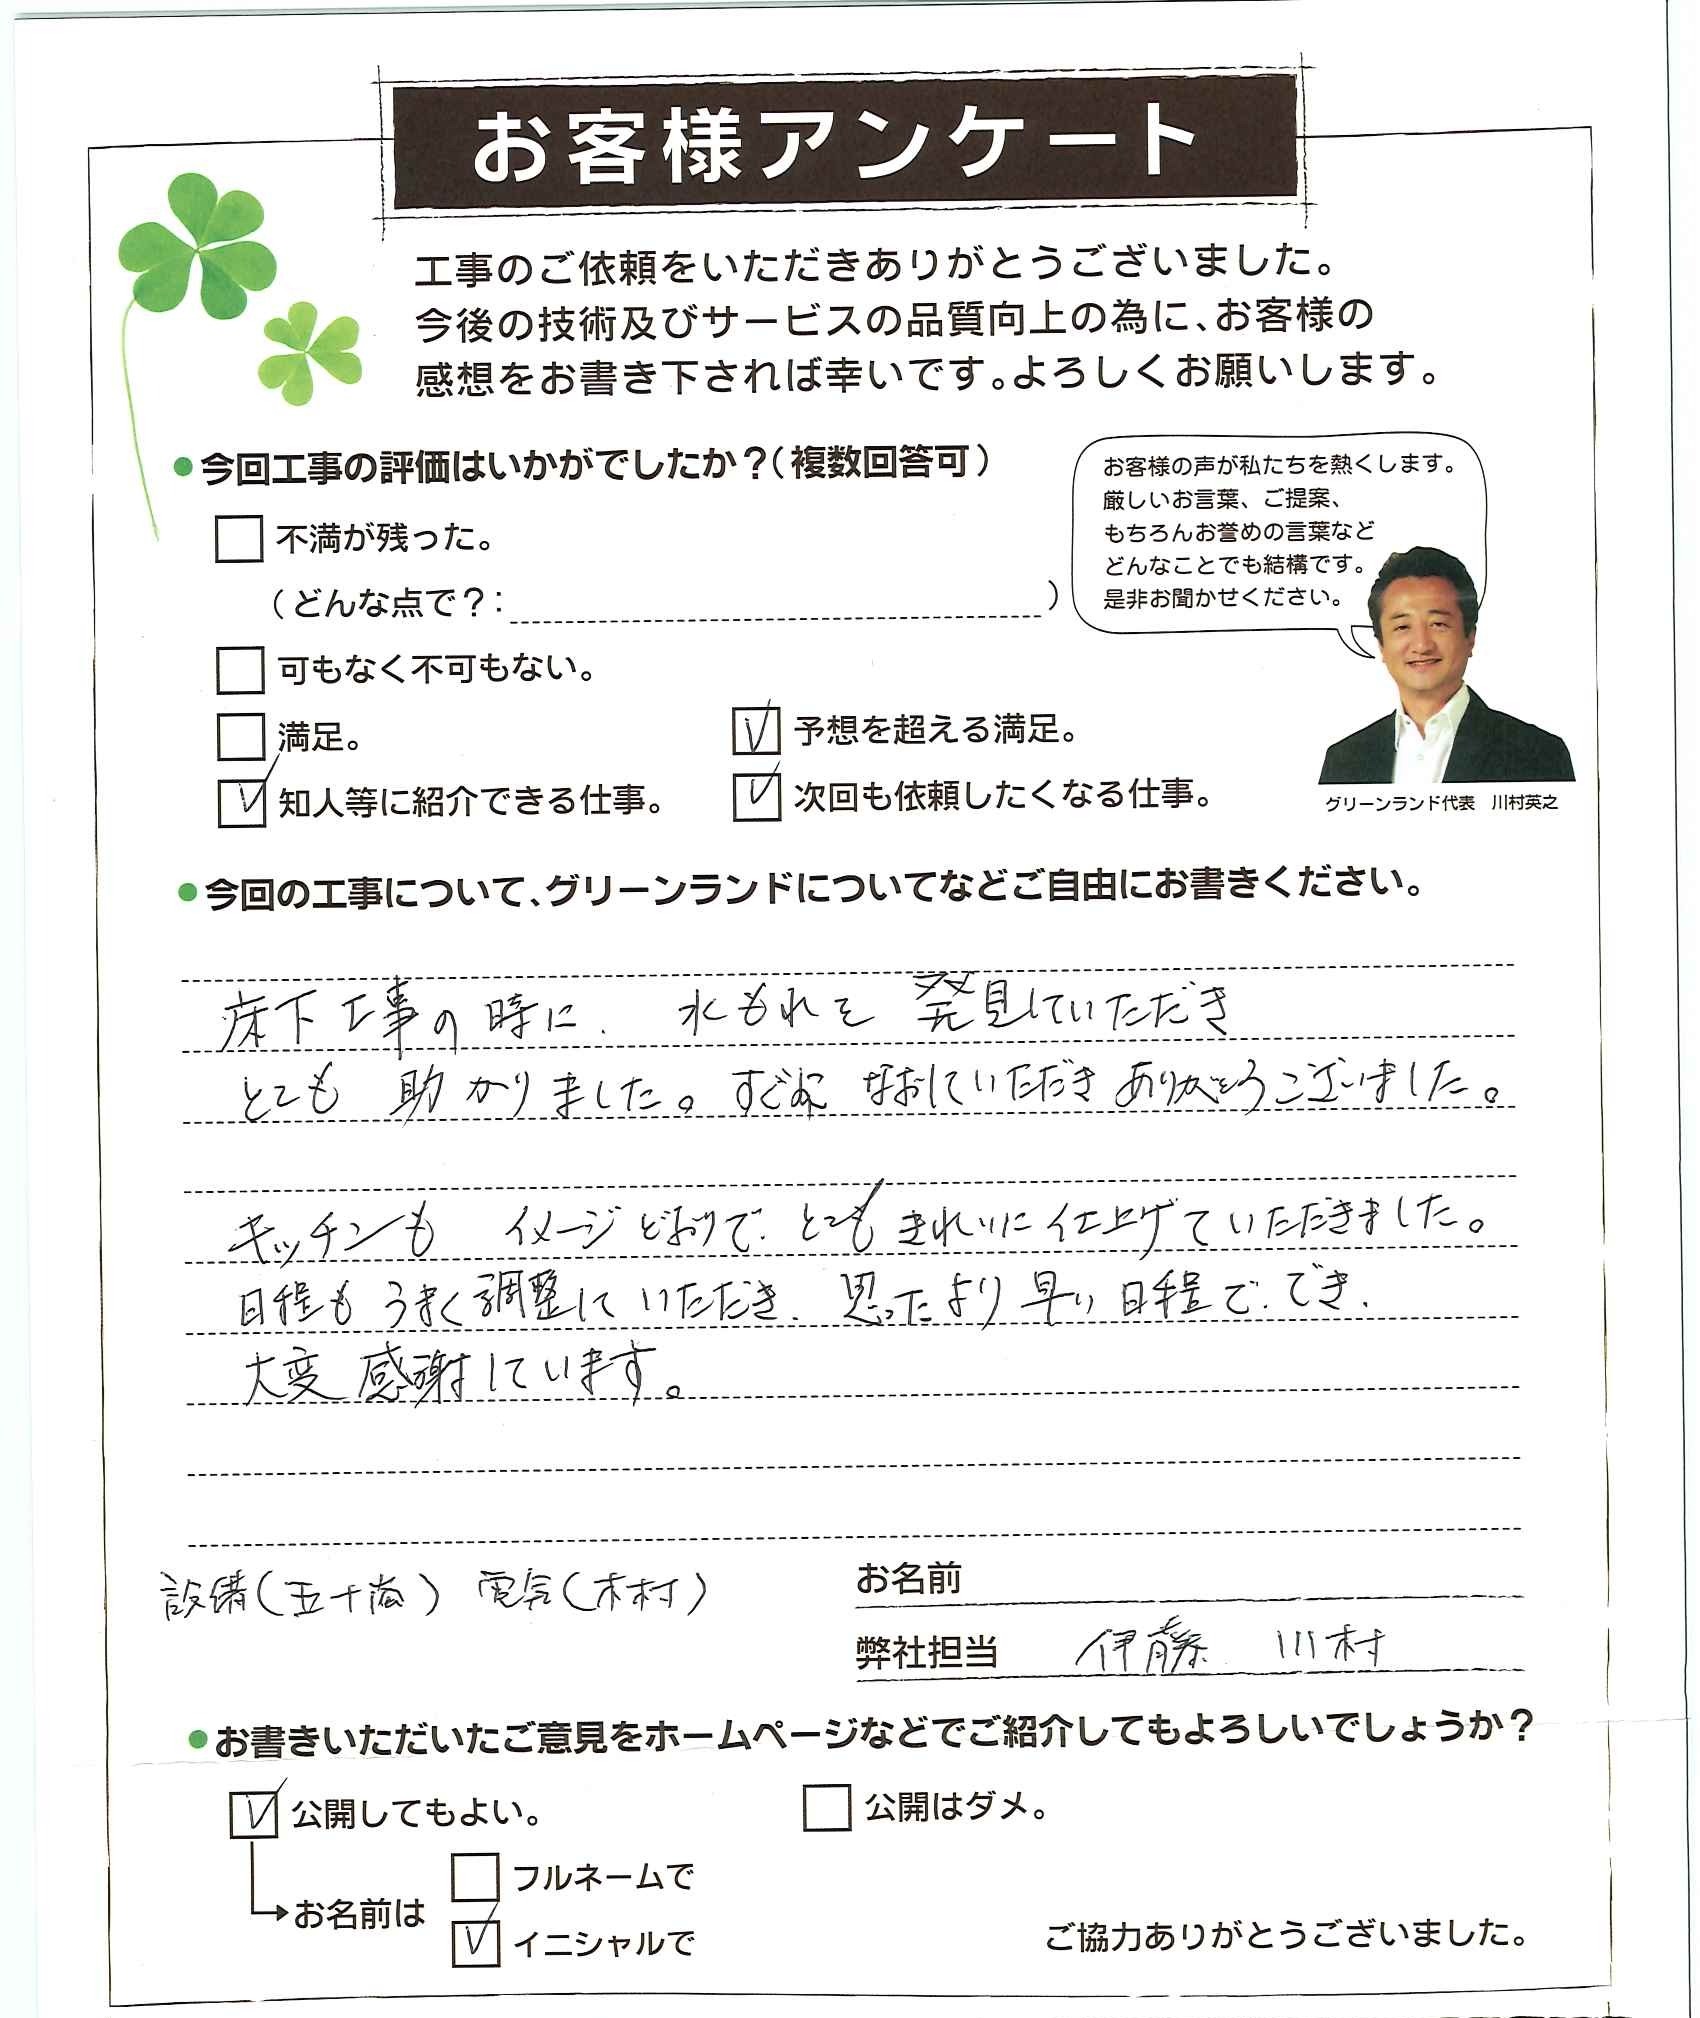 お客様アンケート
工事のご依頼をいただきありがとうございました。
今後の技術及びサービスの品質向上の為に、お客様の
感想をお書き下されば幸いです。よろしくお願いします。
●今回工事の評価はいかがでしたか？（複数回答可）
お客様の声が私たちを熱くします。
厳しいお言葉、ご提案、
もちろんお誉めの言葉など
どんなことでも結構です。
是非お聞かせください。
不満が残った。
（どんな点で？：　）
可もなく不可もない。
満足。
予想を超える満足。
知人等に紹介できる仕事。
次回も依頼したくなる仕事。
グリーンランド代表　川村英之
●今回の工事について、グリーンランドについてなどご自由にお書きください。
床下工事の時に、水もれを発見していただき
とても助かりました。すぐになおしていただきありがとうございました。
キッチンも イメージどおりで、とてもきれいに仕上げていただきました。
日程もうまく調整していただき、思ったより早い日程で、でき、
大変感謝しています。
設備（五十嵐） 電気（木村）
お名前
弊社担当　伊藤　川村
●お書きいただいたご意見をホームページなどでご紹介してもよろしいでしょうか？
公開してもよい。
公開はダメ。
お名前は
フルネームで
イニシャルで
ご協力ありがとうございました。